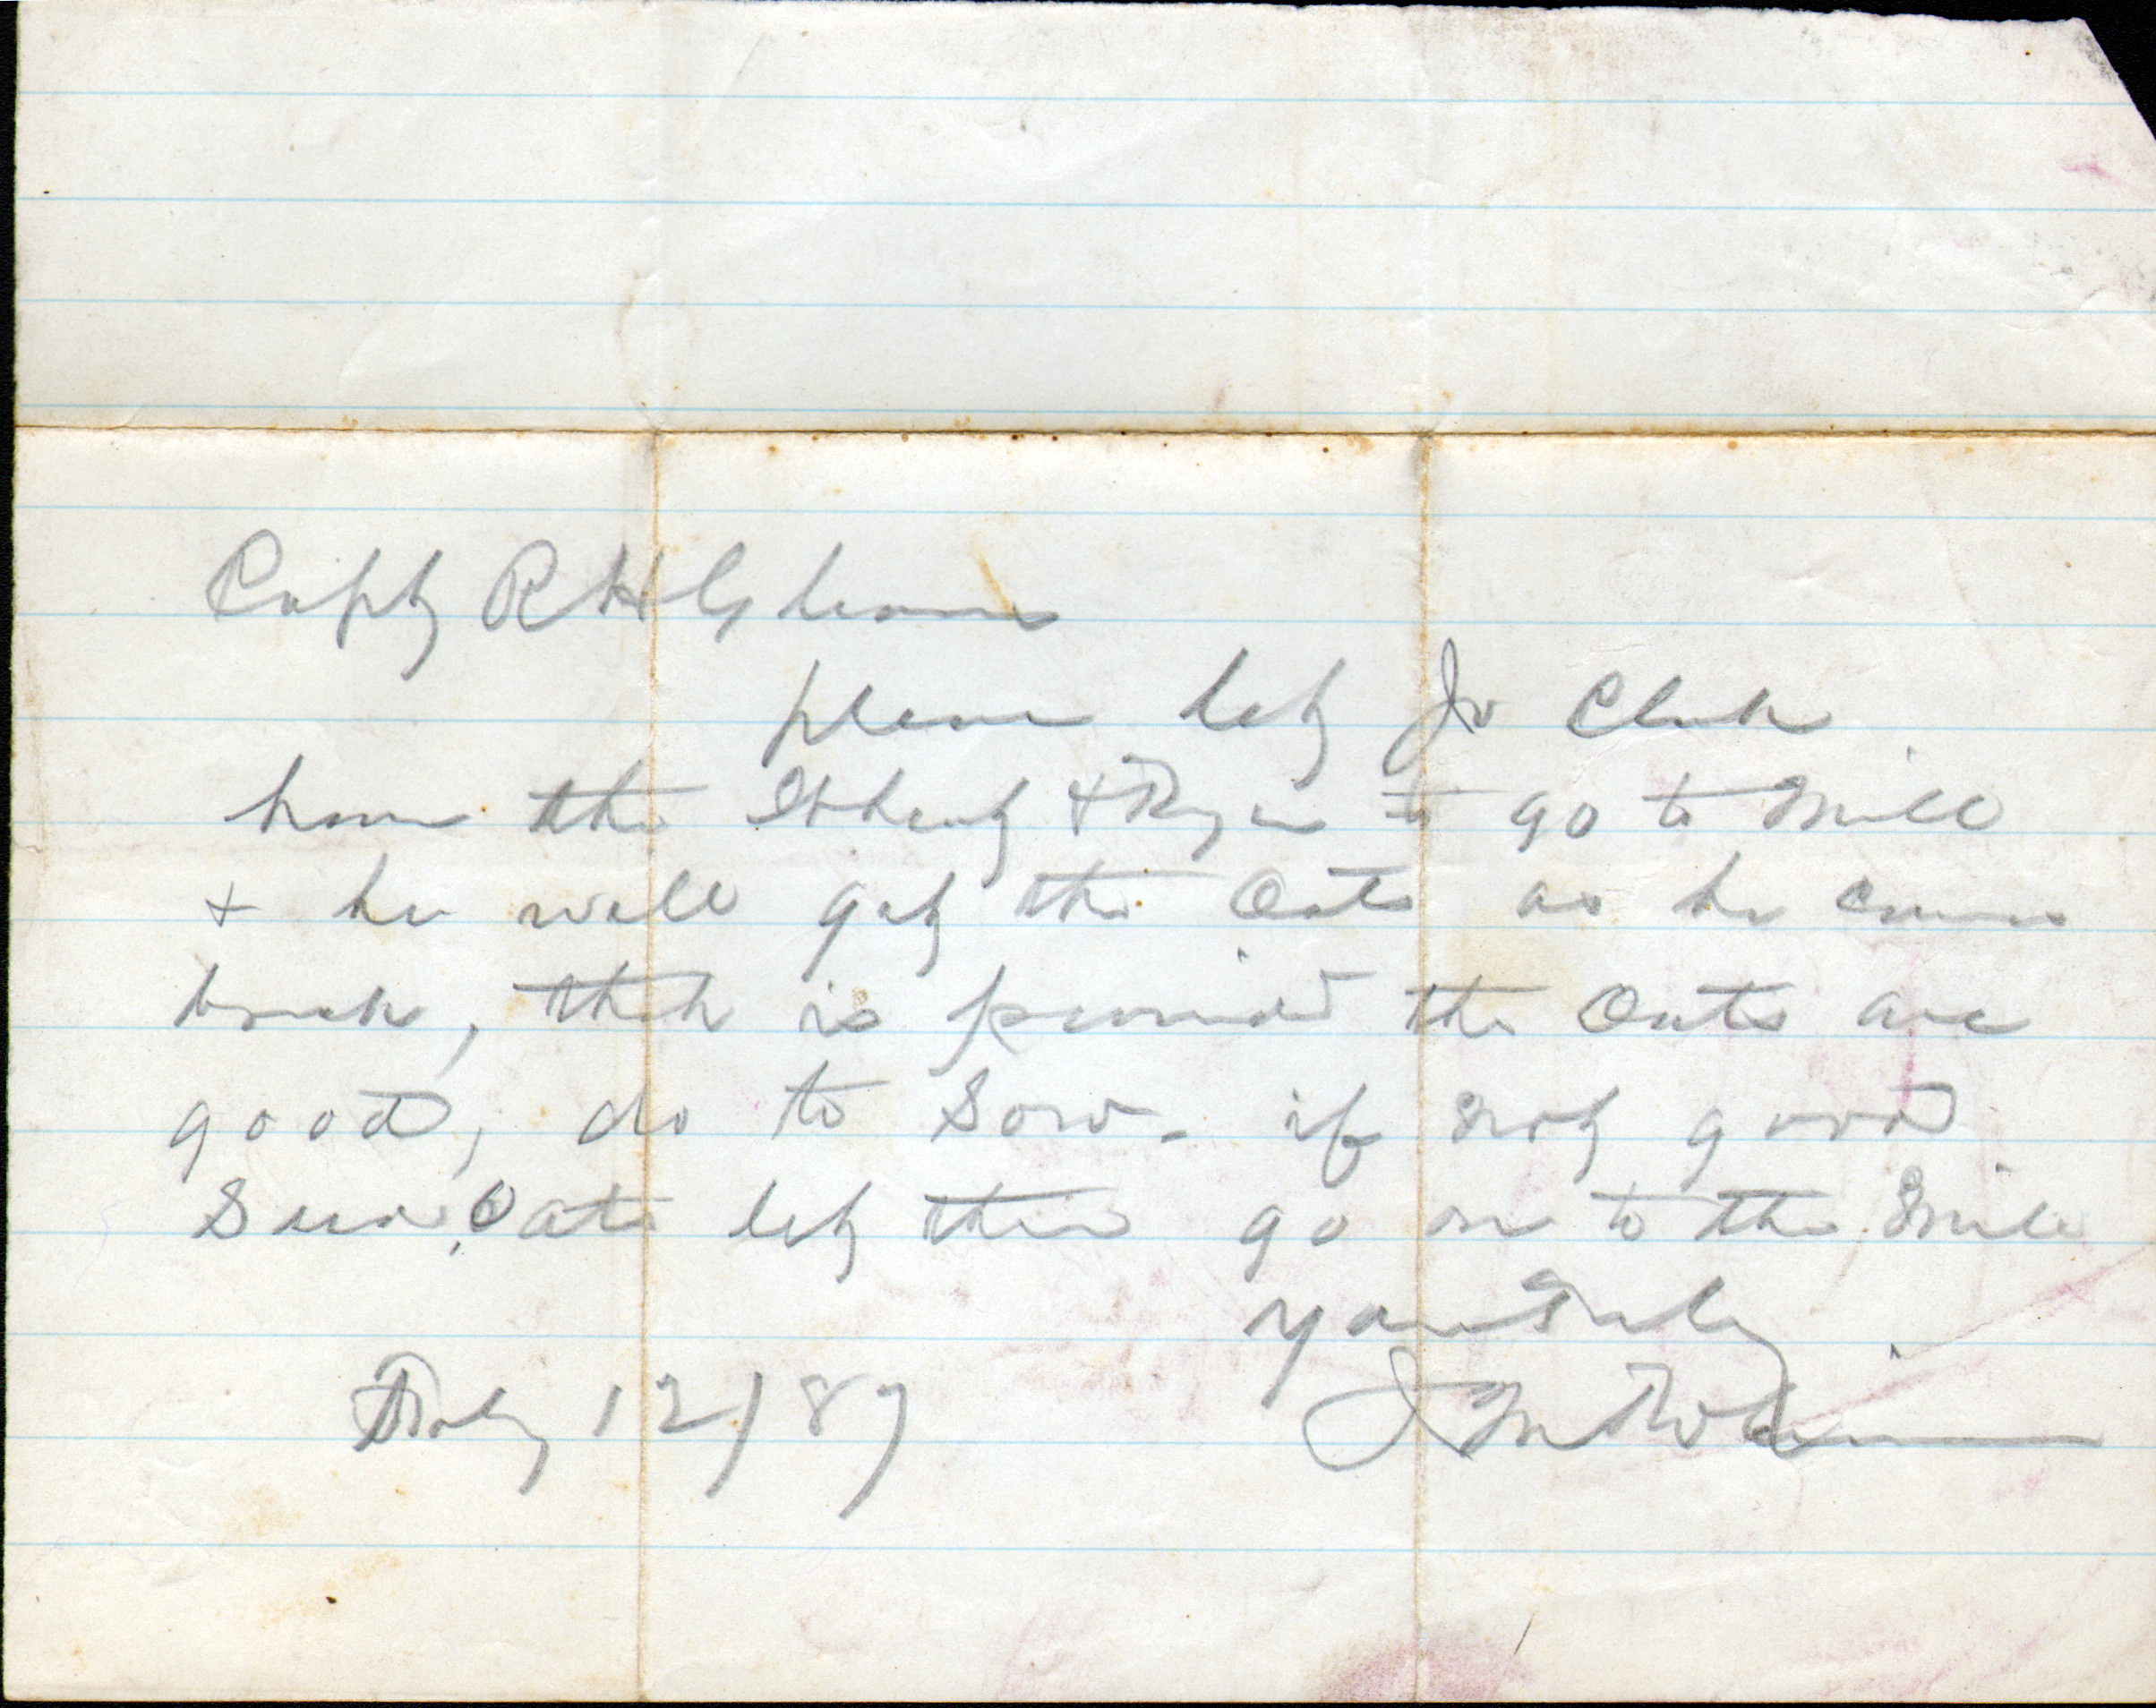 Capt R H
please let Jo Clark
have the Wheat & Rye to go to mill
& he will get the Oats as he comes
back, that is provided the Oats are
good, do to Sow - if not good
Seed Oats let them go on to the mill
Yours Truly
Feby 12/87 J M